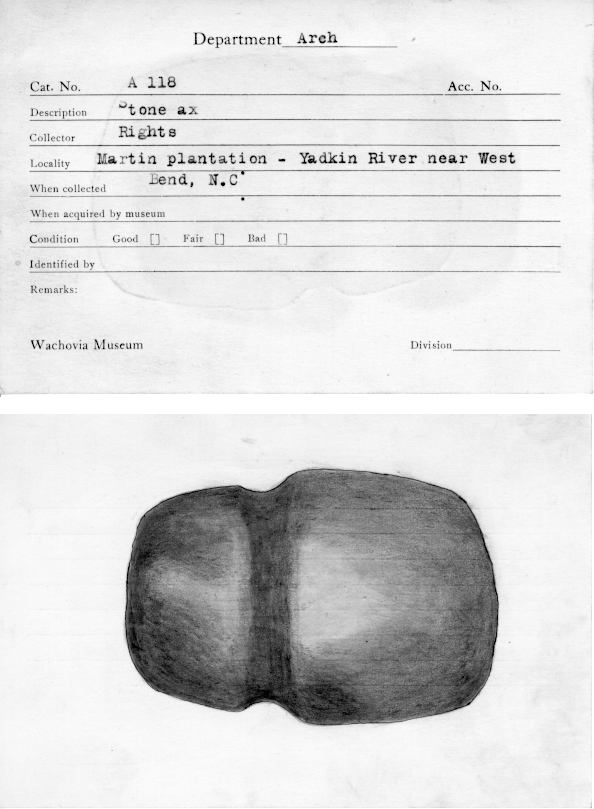 Department Arch
Cat. No. A 118 Acc. No.
Description Stone ax
Collector Rights
Locality Martin plantation - Yadkin River near West
When collected Bend, N.C.
When acquired by museum
Condition Good [] Fair [] Bad []
Identified by
Remarks:
Wachovia Museum Division